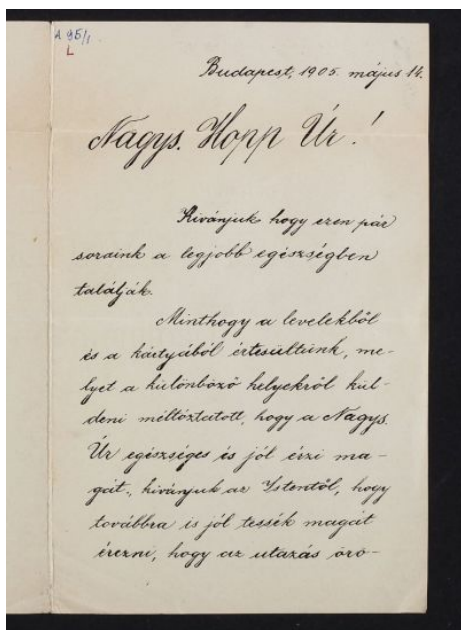 A 95/1
L
Budapest, 1905. május 14.
Nagys. Hopp Úr!
Kivánjuk hogy ezen pár
soraink a legjobb egészségben
találják.
Minthogy a levelekből
és a kártyából értesültünk, me-
lyet a különböző helyekről kül-
deni méltóztatott, hogy a Nagys.
Úr egészséges és jól érzi ma-
gát, kivánjuk az Istentől, hogy
továbbra is jól tessék magát
érezni, hogy az utazás örö-